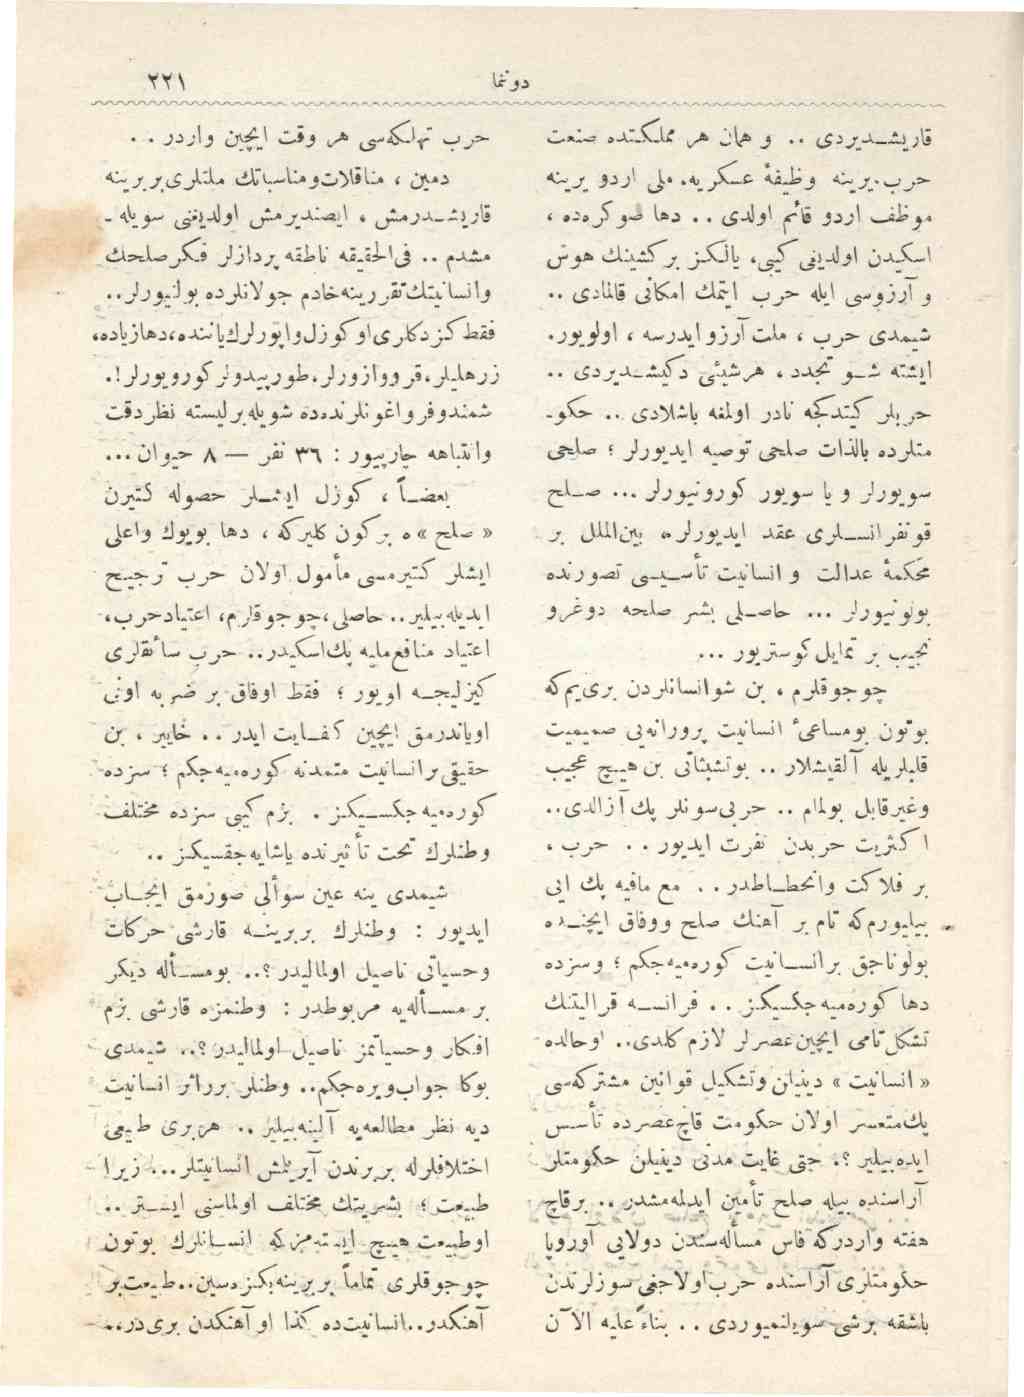 دونما
٢٢١
قاریشـدیردی .. و همان هر مملکتده صنعت
حرب‌یرینه وظیفهٔ عسکریه، ملی اردو یرینه
موظف اردو قائم اولدی .. دها صوکره‌ده ،
اسکیدن اولدیغی کیبی، یالکـز بر کشینك هوس
و آرزوسی ایله حرب ایتمك امکانی قالمادی ..
شیمدی حرب ، ملت آرزو ایدرسه ، اولویور.
ایشته شـو تجدد ، هرشیئی دکیشـدیردی ..
حربلر کیتدکجه نادر اولمغه باشلادی .. حکو-
متلرده بالذات صلحی توصیه ایدیورلر ؛ صلحی
سویورلر و یا سویور کورونیورلر ... صـلح
قونفرانسـلری عقد ایدیورلر، بین‌الملل بر
محکمهٔ عدالت و انسانیت تأسـیسی تصورنده
بولونیورلر ... حاصـلی بشر صلحه دوغرو
نجیب بر تمایل‌کوستریور ...
چوجوقلرم ، بن شوانسانلردن بری‌یم‌که
بوتون بومساعیٔ انسانیت پرورانه‌یی صمیمیت
قلبلریله آلقیشلار .. بوتشبثاتی بن هیـچ عجیب
وغیرقابل بولمام .. حربی‌سونلر پك آزالدی..
اکثریت حربدن نفرت ایدیور .. حرب ،
بر فلاکت وانحطـاطدر .. مع مافیه پك ایی
بیلیورم‌که تام بر آهنك صلح ووفاق ایچنـده
بولوناجق برانسـانیت کوره‌میه‌جکم ؛ وسزده
دها کوره‌میه‌جکـسکـز .. فرانسـه قرالیتنك
تشکل‌تامی ایچین‌عصرلر لازم کلدی.. اوحالده
« انسانیت » دینیلن وتشکیل قوانین مشترکه‌سی
پك‌متعسر اولان حکومت قاچ‌عصرده تأسس
ایده‌بیلیر ؟. حتی غایت مدنی دینیلن حکومتلر
آراسنده بیله صلح تأمین ایدلمه‌مشدر .. برقاچ
هفته واردرکه فاس مسأله‌سندن دولایی آوروپا
حکومتلری آراسنده حرب‌اولاجغی سوزلرندن
باشقه برشی سویلنمیوردی .. بناءً علیه الآن
حرب تهلکه‌سی هر وقت ایچین واردر ..
دمین ، مناقلات‌ومناسباتك ملتلری‌بربرینه
قاریشـدرمش ، ایصندیرمش اولدیغنی سویله -
مشدم .. فی‌الحقیقه ناطقه پردازلر فـکرصلحك
وانسانیتك‌تقررینه‌خادم جولانلرده بولنیورلر..
فقط‌کزدکلری‌اوکوزل‌واپورلرك‌یاننده،دهازیاده،
زرهلیلر،قرووازورلر،طورپیدولرکورویورلر!.
شمندوفرواغونلرنده‌ده شویله‌برلیسته نظردقت
وانتباهه چارپیور : ٣٦ نفر — ٨ حیوان ...
بعضـاً ، کوزل ایشـلر حصوله کتیرن
« صلح » ه برکون کلیرکه ، دها بویوك واعلی
ایشلر کتیرمسی مأمول اولان حرب ترجیـح
ایدیله‌بیلیر.. حاصلی،چوجوقلرم، اعتیادحرب،
اعتیاد منافع‌ملیه پك‌اسکیدر.. حرب سائقه‌لری
کیزلیجـه اویور ؛ فقط اوفاق بر ضربه اونی
اویاندرمق ایچین کفـایت ایدر .. خاییر ، بن
حقیقی‌برانسانیت متمدنه کوره‌میه‌جکم ؛ سزده
کوره‌میه‌جکسـیکـز . بزم کیبی سزده مختلف
وطنلرك تحت تأثیرنده یاشایه‌جقسیکـز ..
شیمدی ینه عین سوألی صورمق ایجـاب
ایدیور : وطنلرك بربرینـه قارشی حرکات
وحسیاتی ناصیل اولمالیدر ؟.. بومسـأله دیکر
بر مسـأله‌یه مربوطدر : وطنمزه قارشی بزم
افـکار وحسیاتمز ناصیـل اولمالیدر ؟.. شیمدی
بوکا جواب‌ویره‌جکم.. وطنلر برراثر انسانیت
دیه نظر مطالعه‌یه آلینه‌بیلیر .. هربری طبیعی
اختلافلرله بربرندن آیریلمش انسانیتلر... زیرا
طبیعت ؛ بشریتك مختلف اولماسنی ایسـتر ..
اوطبیعت هیـچ ایسته‌مزکه انسـانلرك بوتون
چوجوقلری تماماً بربرینه‌بکزه‌سین..طبیعت‌بر
آهنکدر..انسانیت‌ده کذا او آهنکدن بری‌در..